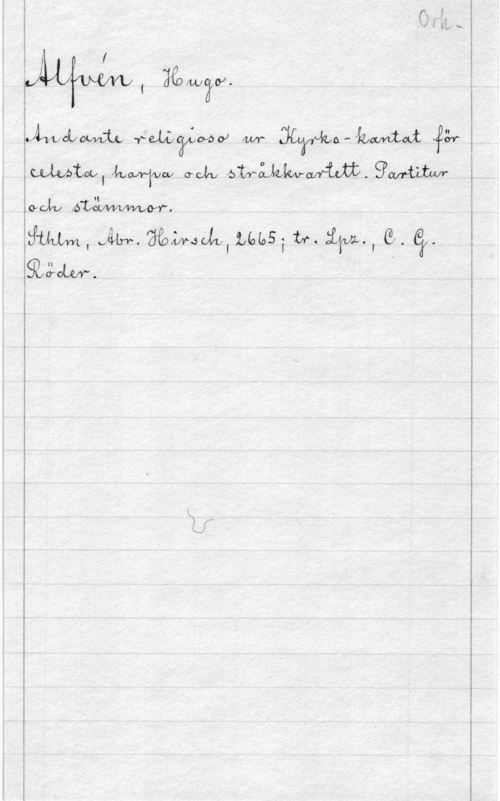 Ork.
Alfvén, Hugo.
Andante religioso ur Kyrko-kantat för
celesta, harpa och stråkkvartett. Partitur
och stämmor.
Sthlm, Abr. Hirsch, 2665; tr. Lpz., C. G.
Röder.